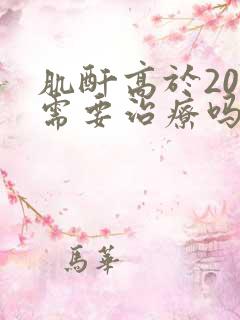 肌酐高於20
需要治療嗎
馬華